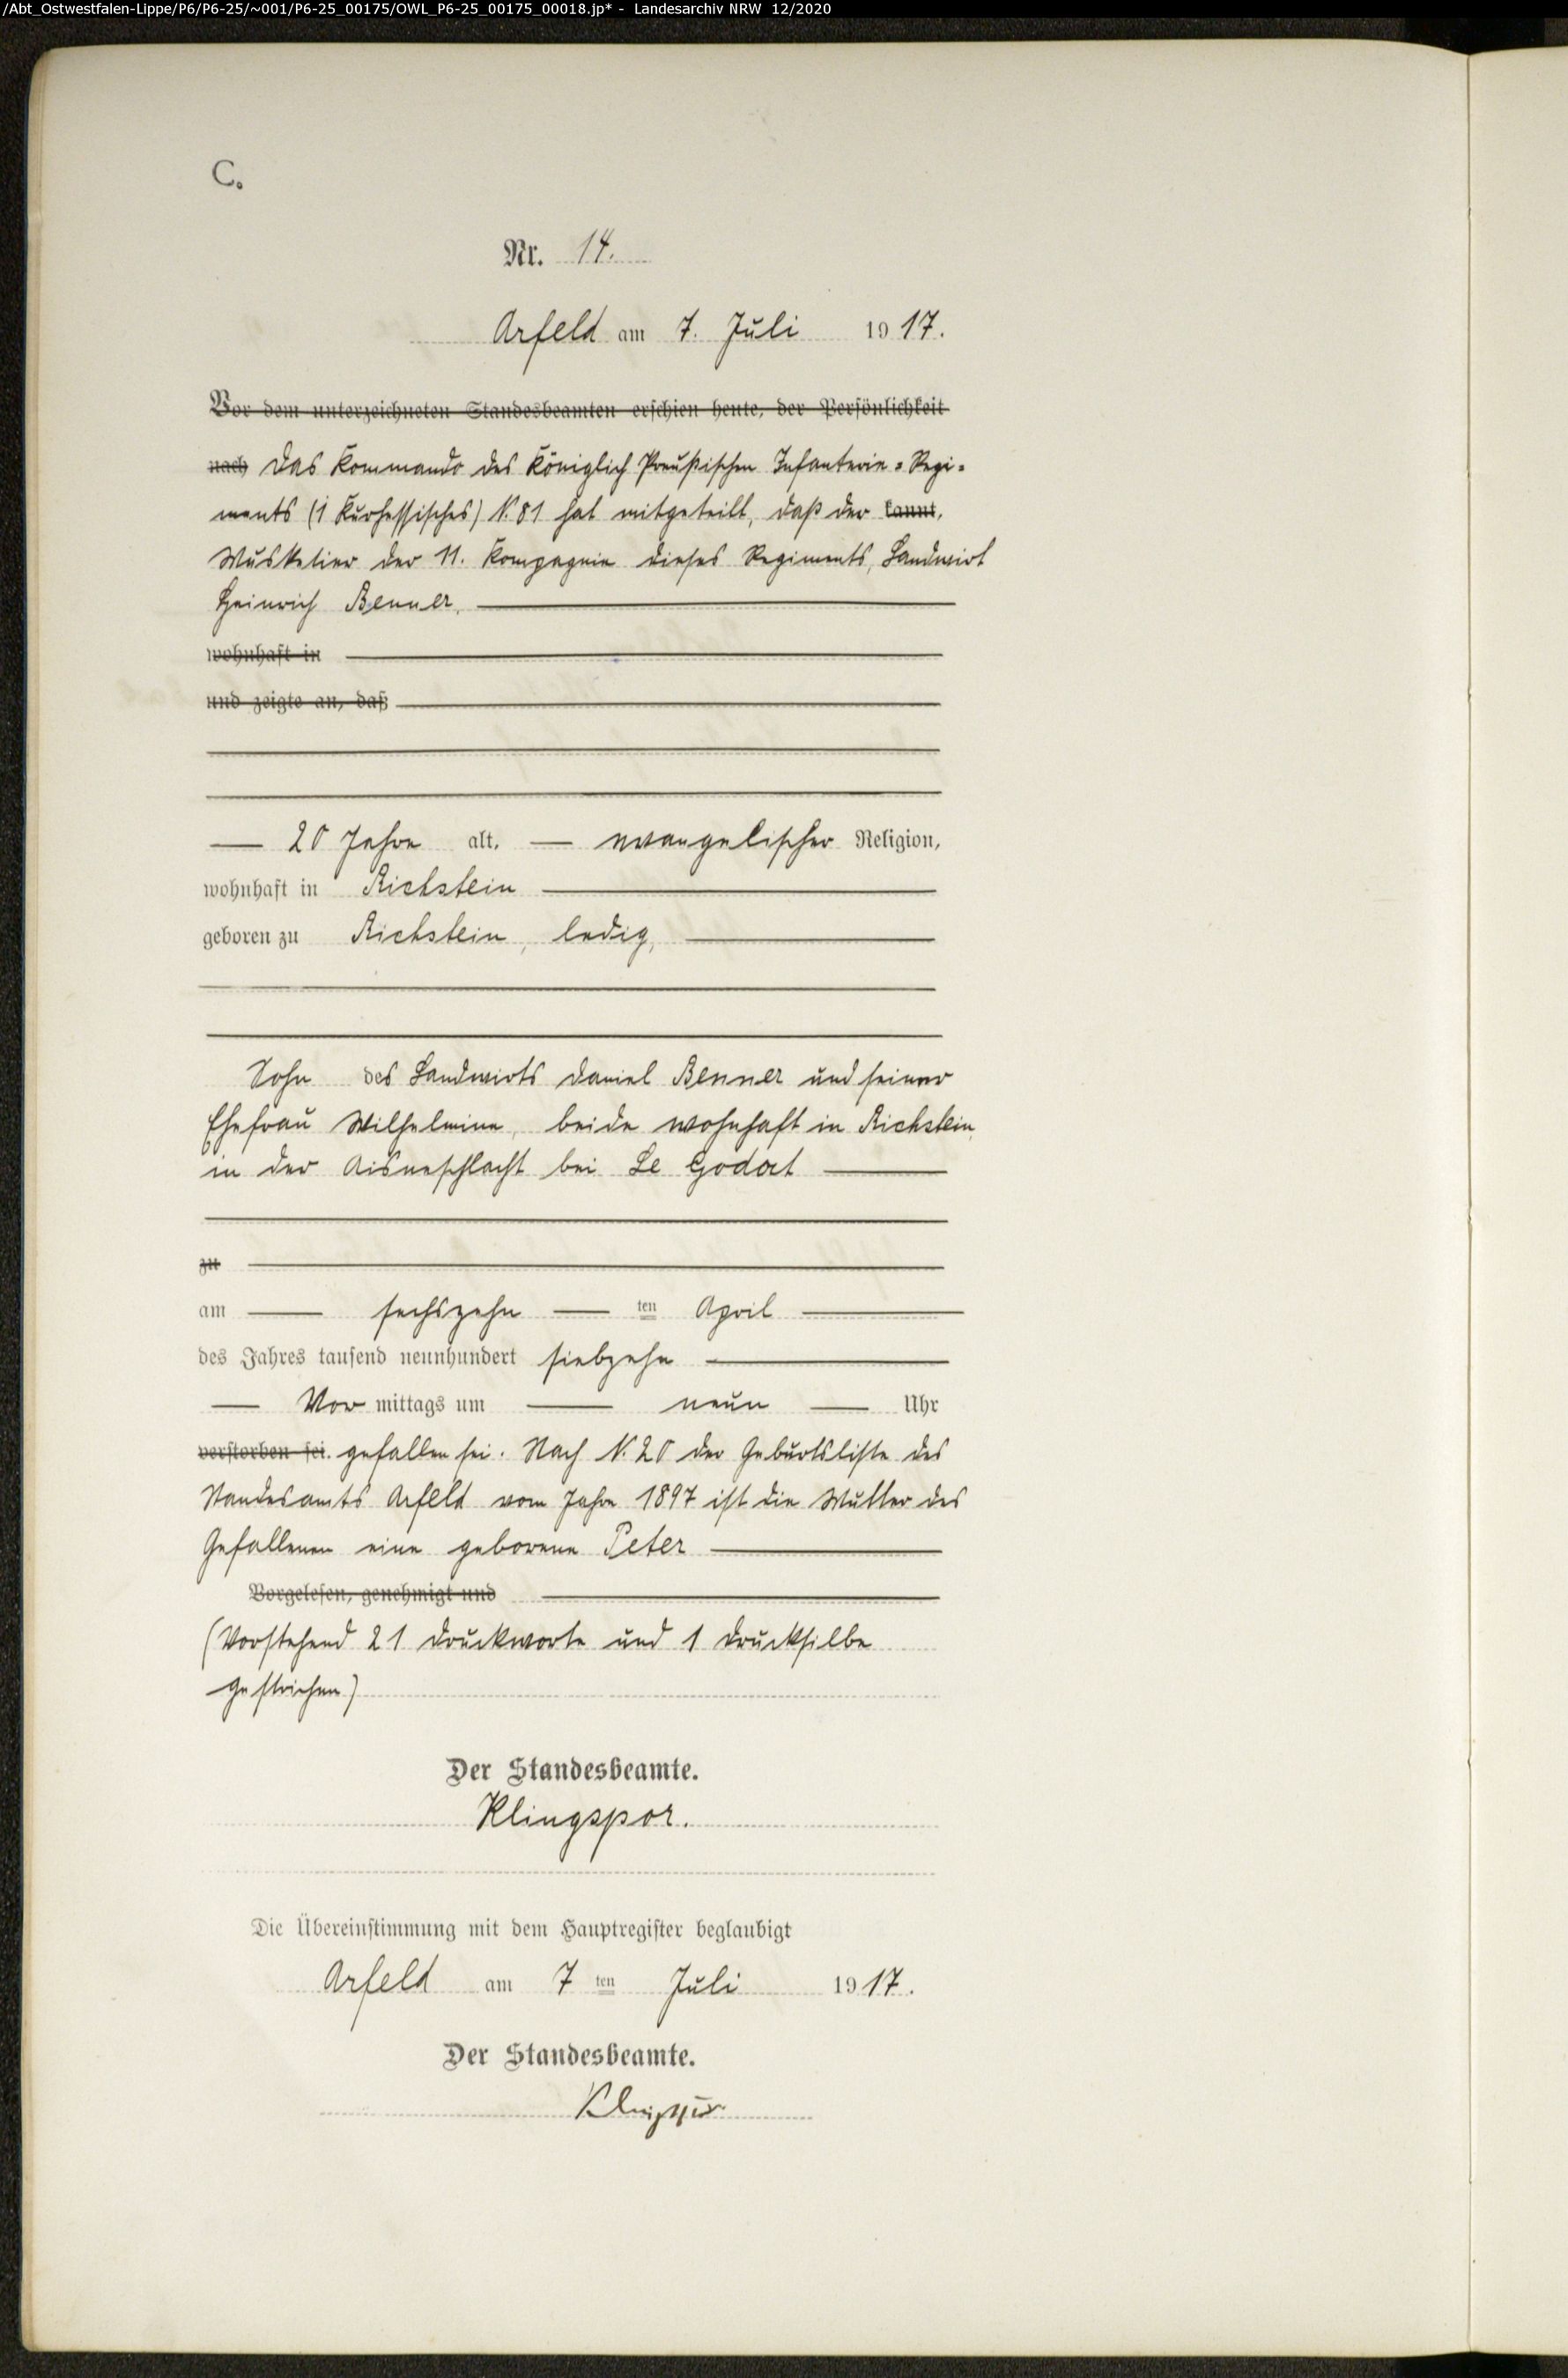 /Abt_Ostwestfalen-Lippe/P6/P6-25/~001/P6-25_00175/OWL_P6-25_00175_00018.jp* - Landesarchiv NRW 12/2020
C.
Nr. 14.
Arfeld am 7. Juli 1917.
Vor dem unterzeichneten Standesbeamten erschien heute, der Persönlichkeit
nach Das Kommando des Königlich Preußischen Infanterie=Regi=
ments (1 Kurhessisches) N. 81 hat mitgeteilt, daß der kannt,
Musketier der 11. Kompagnie dieses Regiments, Landwirt
Heinrich Benner,
wohnhaft in
und zeigte an, daß
20 Jahre alt, evangelischer Religion,
wohnhaft in Richstein
geboren zu Richstein, ledig,
Sohn des Landwirts Daniel Benner und seiner
Ehefrau Wilhelmine, beide wohnhaft in Richstein,
in der Aisneschlacht bei Le Godat
zu
am sechszehn ten April
des Jahres tausend neunhundert siebzehn
Vor mittags um neun Uhr
verstorben sei. gefallen sei. Nach N. 20 der Geburtsliste des
Standesamts Arfeld vom Jahre 1897 ist die Mutter des
Gefallenen eine geborene Peter
Vorgelesen, genehmigt und
(Vorstehend 21 Druckworte und 1 Drucksilbe
gestrichen)
Der Standesbeamte.
Klingspor.
Die Übereinstimmung mit dem Hauptregister beglaubigt
Arfeld am 7 ten Juli 1917.
Der Standesbeamte.
Klingspor